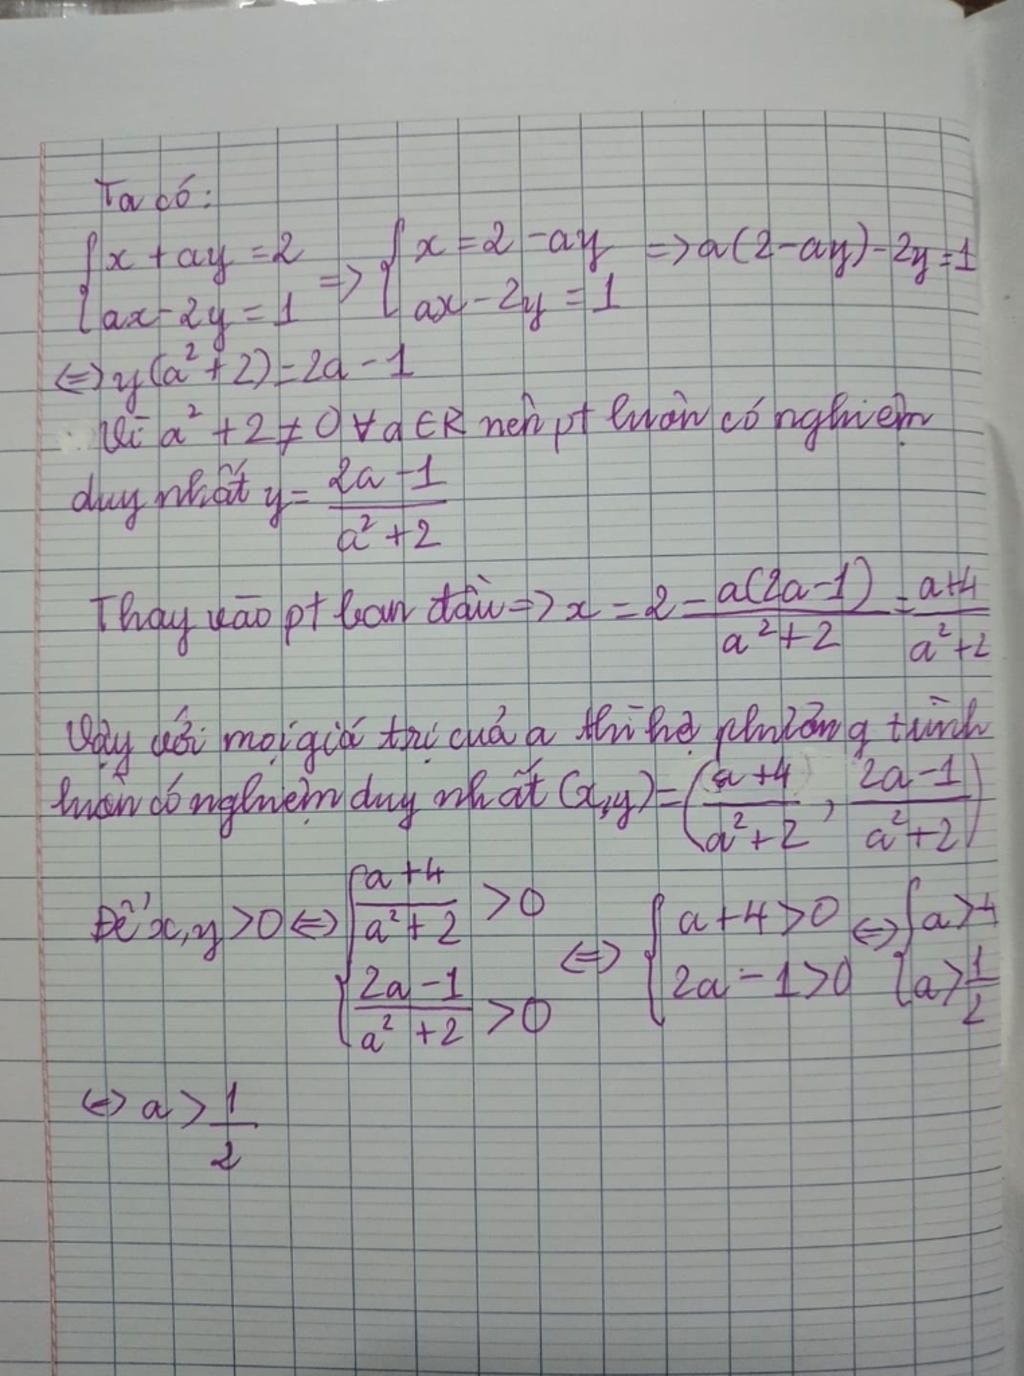 Ta có:
{x + ay = 2 => {x = 2 - ay => a(2-ay) - 2y = 1
{ax - 2y = 1 {ax - 2y = 1
<=> y(a² + 2) = 2a - 1
Vì a² + 2 ≠ 0 ∀ a ∈ R nên pt luôn có nghiệm
duy nhất y = (2a - 1)/(a² + 2)
Thay vào pt ban đầu => x = 2 - a(2a-1)/(a² + 2) = (a+4)/(a²+2)
Vậy với mọi giá trị của a thì hệ phương trình
luôn có nghiệm duy nhất (x,y) = ((a+4)/(a²+2), (2a-1)/(a²+2))
Để x,y > 0 <=> {(a+4)/(a²+2) > 0 <=> {a+4 > 0 <=> {a > 4
{(2a-1)/(a²+2) > 0 {2a - 1 > 0 {a > 1/2
<=> a > 1/2